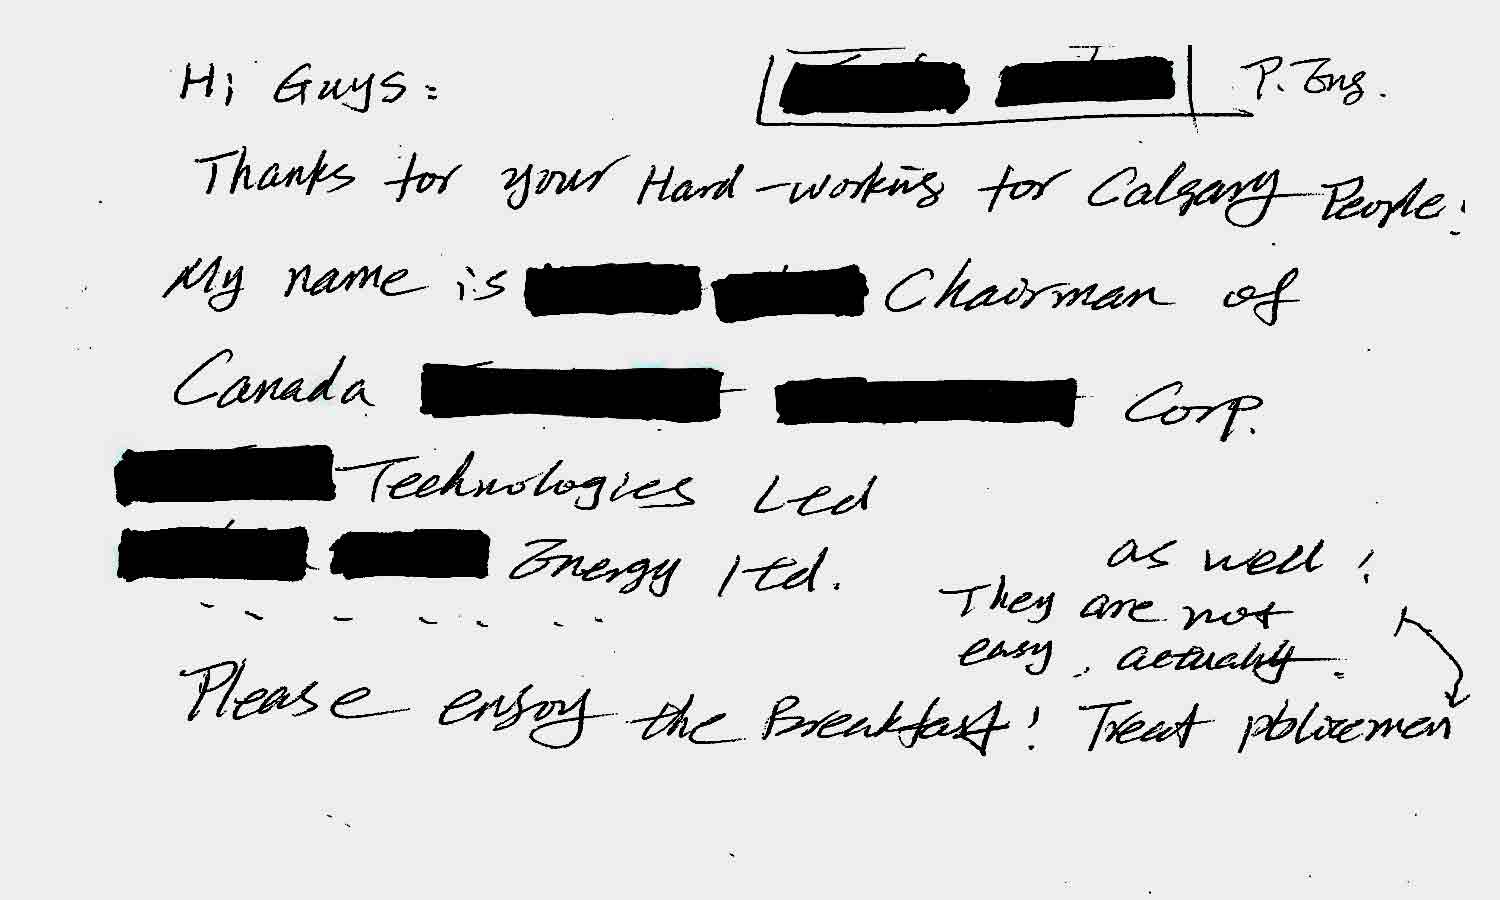 Hi Guys: P. Eng.
Thanks for your Hard-working for Calgary People!
My name is Chairman of
Canada Corp.
Technologies Ltd
Energy ltd.
Please enjoy the Breakfast! Treat policemen
as well!
They are not
easy, actually.